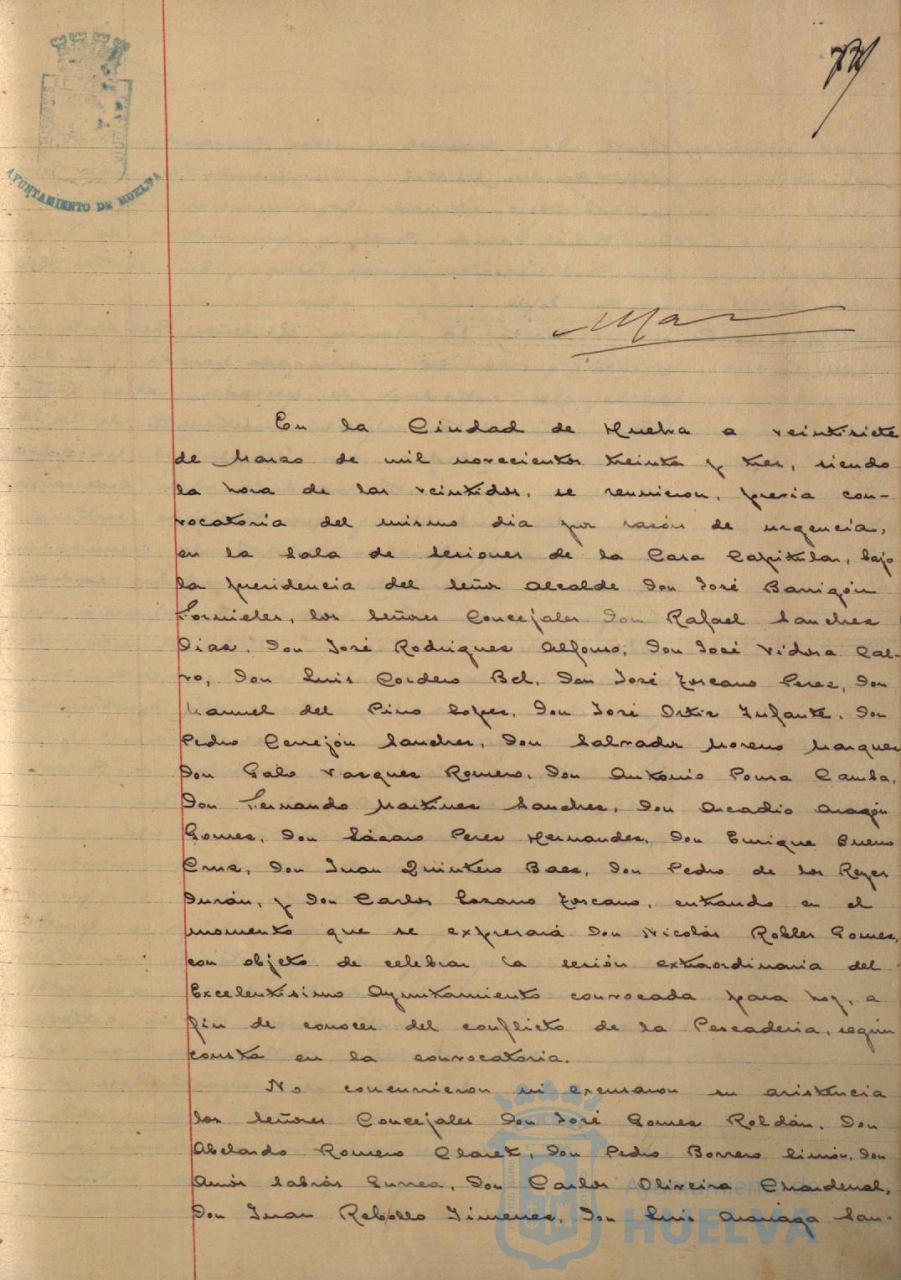 AYUNTAMIENTO DE HUELVA
En la Ciudad de Huelva a veintisiete
de Marzo de mil novecientos treinta y tres, siendo
la hora de las veintidos, se reunieron, previa con-
vocatoria del mismo dia por razón de urgencia,
en la Sala de Sesiones de la Casa Capitular, bajo
la presidencia del Señor Alcalde Don José Barrigón
Fornieles, los Señores Concejales Don Rafael Sanchez
Diaz, Don José Rodriguez Alfonso, Don José Vidosa Cal-
vo, Don Luis Cordero Bel, Don José Toscano Perez, Don
Manuel del Pino Lopez, Don José Ortiz Infante, Don
Pedro Cerrejón Sanchez, Don Salvador Moreno Marquez
Don Galo Vazquez Romero, Don Antonio Pousa Camba,
Don Fernando Martinez Sanchez, Don Arcadio Aragón
Gomez, Don Lázaro Perez Hernandez, Don Enrique Bueno
Cruz, Don Juan Quintero Baez, Don Pedro de los Reyes
Durán, y Don Carlos Lozano Toscano, entrando en el
momento que se expresará Don Nicolás Robles Gomez,
con objeto de celebrar la sesión extraordinaria del
Excelentisimo Ayuntamiento convocada para hoy, a
fin de conocer del conflicto de la Pescaderia, según
consta en la convocatoria.
No concurrieron ni excusaron su asistencia
los Señores Concejales Don José Gomez Roldán, Don
Abelardo Romero Claret, Don Pedro Borrero Limón, Don
Amós Sabrás Gurrea, Don Carlos Oliveira Chardenal,
Don Juan Rebollo Jimenez, Don Luis Madriaga San-
Ayuntamiento de
HUELVA